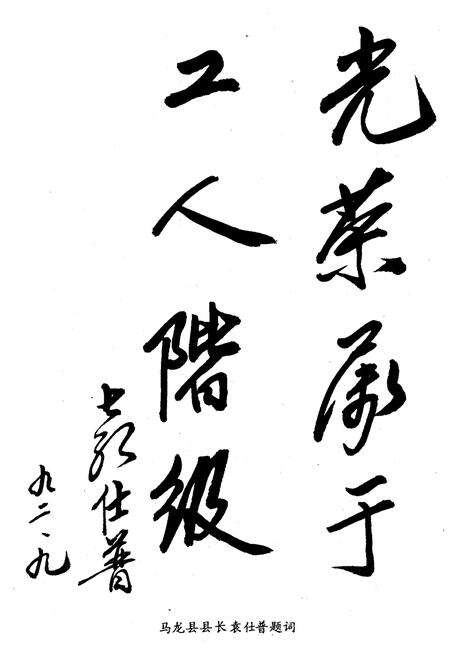 光荣属于
工人階级
袁仕普
九二、九
马龙县县长袁仕普题词